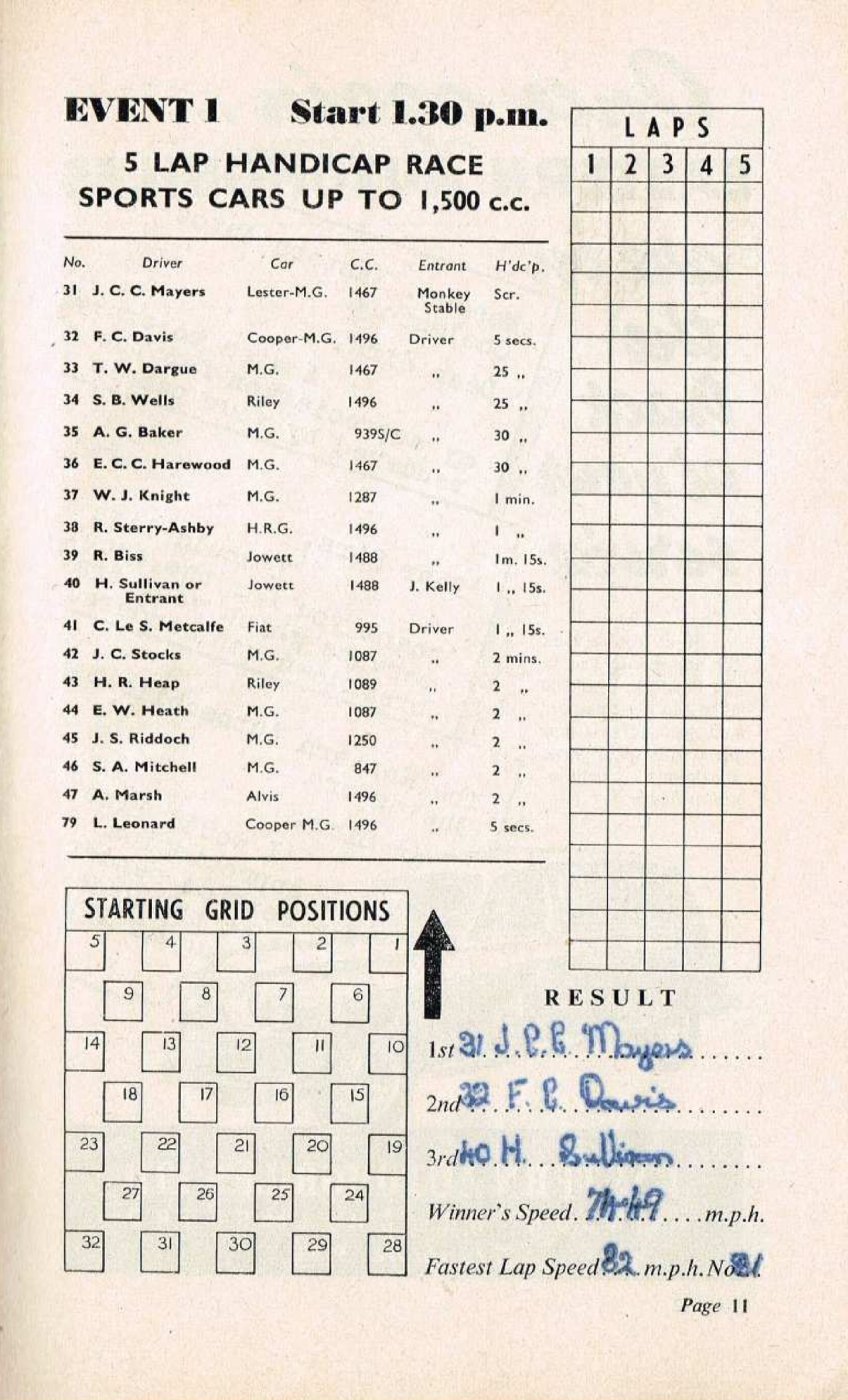 EVENT 1 Start 1.30 p.m.
5 LAP HANDICAP RACE
SPORTS CARS UP TO 1,500 c.c.
No. Driver Car C.C. Entrant H'dc'p.
31 J. C. C. Mayers Lester-M.G. 1467 Monkey Stable Scr.
32 F. C. Davis Cooper-M.G. 1496 Driver 5 secs.
33 T. W. Dargue M.G. 1467 ,, 25 ,,
34 S. B. Wells Riley 1496 ,, 25 ,,
35 A. G. Baker M.G. 939S/C ,, 30 ,,
36 E. C. C. Harewood M.G. 1467 ,, 30 ,,
37 W. J. Knight M.G. 1287 ,, 1 min.
38 R. Sterry-Ashby H.R.G. 1496 ,, 1 ,,
39 R. Biss Jowett 1488 ,, 1m. 15s.
40 H. Sullivan or Entrant Jowett 1488 J. Kelly 1 ,, 15s.
41 C. Le S. Metcalfe Fiat 995 Driver 1 ,, 15s.
42 J. C. Stocks M.G. 1087 ,, 2 mins.
43 H. R. Heap Riley 1089 ,, 2 ,,
44 E. W. Heath M.G. 1087 ,, 2 ,,
45 J. S. Riddoch M.G. 1250 ,, 2 ,,
46 S. A. Mitchell M.G. 847 ,, 2 ,,
47 A. Marsh Alvis 1496 ,, 2 ,,
79 L. Leonard Cooper M.G. 1496 ,, 5 secs.
LAPS
1 2 3 4 5
STARTING GRID POSITIONS
5 4 3 2 1
9 8 7 6
14 13 12 11 10
18 17 16 15
23 22 21 20 19
27 26 25 24
32 31 30 29 28
RESULT
1st 31 J. C. C. Mayers
2nd 32 F. C. Davis
3rd 40 H. Sullivan
Winner's Speed. 74.49 m.p.h.
Fastest Lap Speed 82 m.p.h. No. 31
Page 11